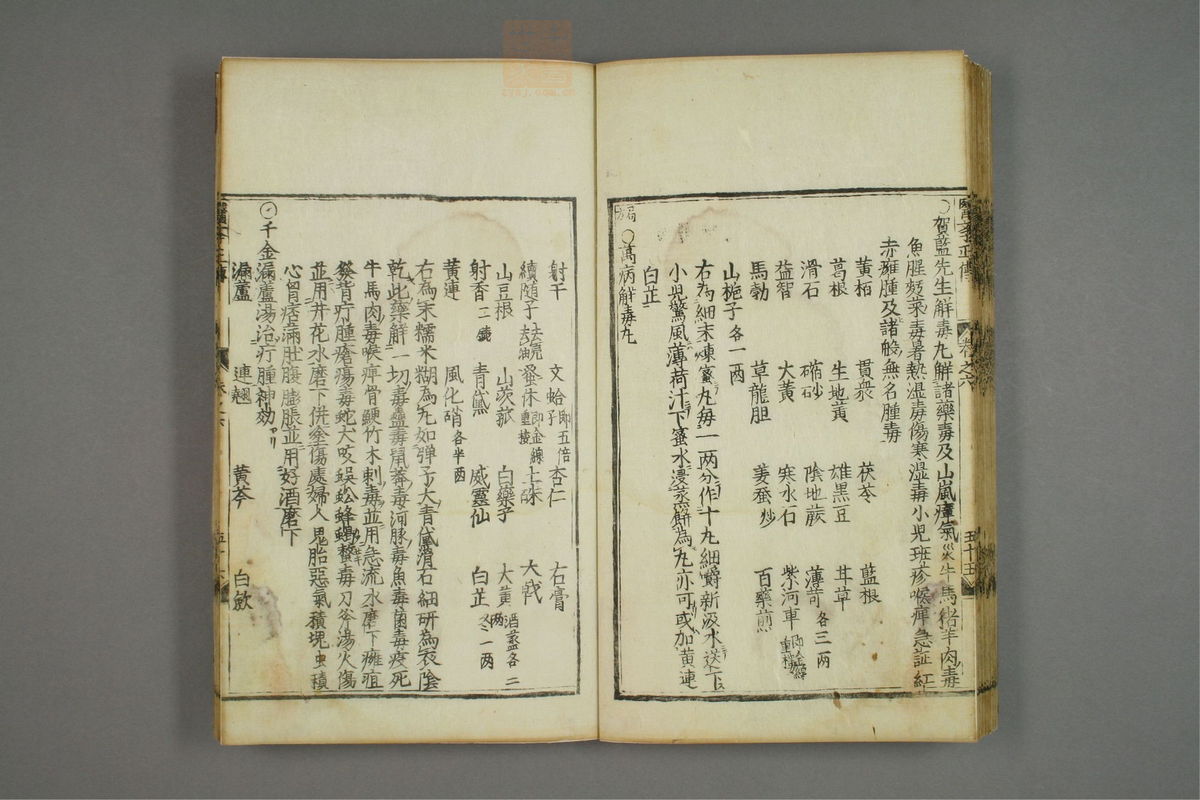 醫學正傳 卷之六 五十五
○賀藍先生解毒丸解諸藥毒及山嵐瘴氣災牛馬猪羊肉毒
魚腥野菜毒暑熱濕毒傷寒濕毒小児班疹喉痺急証紅
赤雍腫及諸般無名腫毒
黄栢 貫衆 茯苓 藍根
葛根 生地黄 雄黒豆 甘草
滑石 硇砂 陰地蕨 薄苛各三兩
益智 大黄 寒水石 紫河車
馬勃 草龍胆 姜蚕炒 百藥煎
山梔子各一兩
右為細末煉蜜丸毎一兩分作十丸細嚼新汲水送下
小児驚風薄荷汁下蜜水浸蒸餅為丸亦可或加黄連
白芷
○萬病解毒丸
射干 文蛤即五倍子 杏仁 石膏
續隨子去壳去油 蚤休即金線重楼 土硃 大戟
山豆根 山茨菰 白藥子 大黄酒蒸各二兩
射香二錢 青黛 威靈仙 白芷各一兩
黄連 風化硝各半两
右為末糯米糊為丸如弾子大青黛滑石細研為衣陰
乾此藥解一切毒蠱毒鼠莽毒河豚毒魚毒菌毒疫死
牛馬肉毒喉痺骨鯁竹木刺毒並用急流水磨下癰疽
發背疔腫瘡瘍毒蛇犬咬蜈蚣蜂蝎螫毒刀斧湯火傷
並用井花水磨下併塗傷處婦人鬼胎惡氣積塊虫積
心曾痞滿肚腹膨脹並用好酒磨下
千金漏蘆湯治疔腫神効
漏蘆 連翹 黄芩 白歛